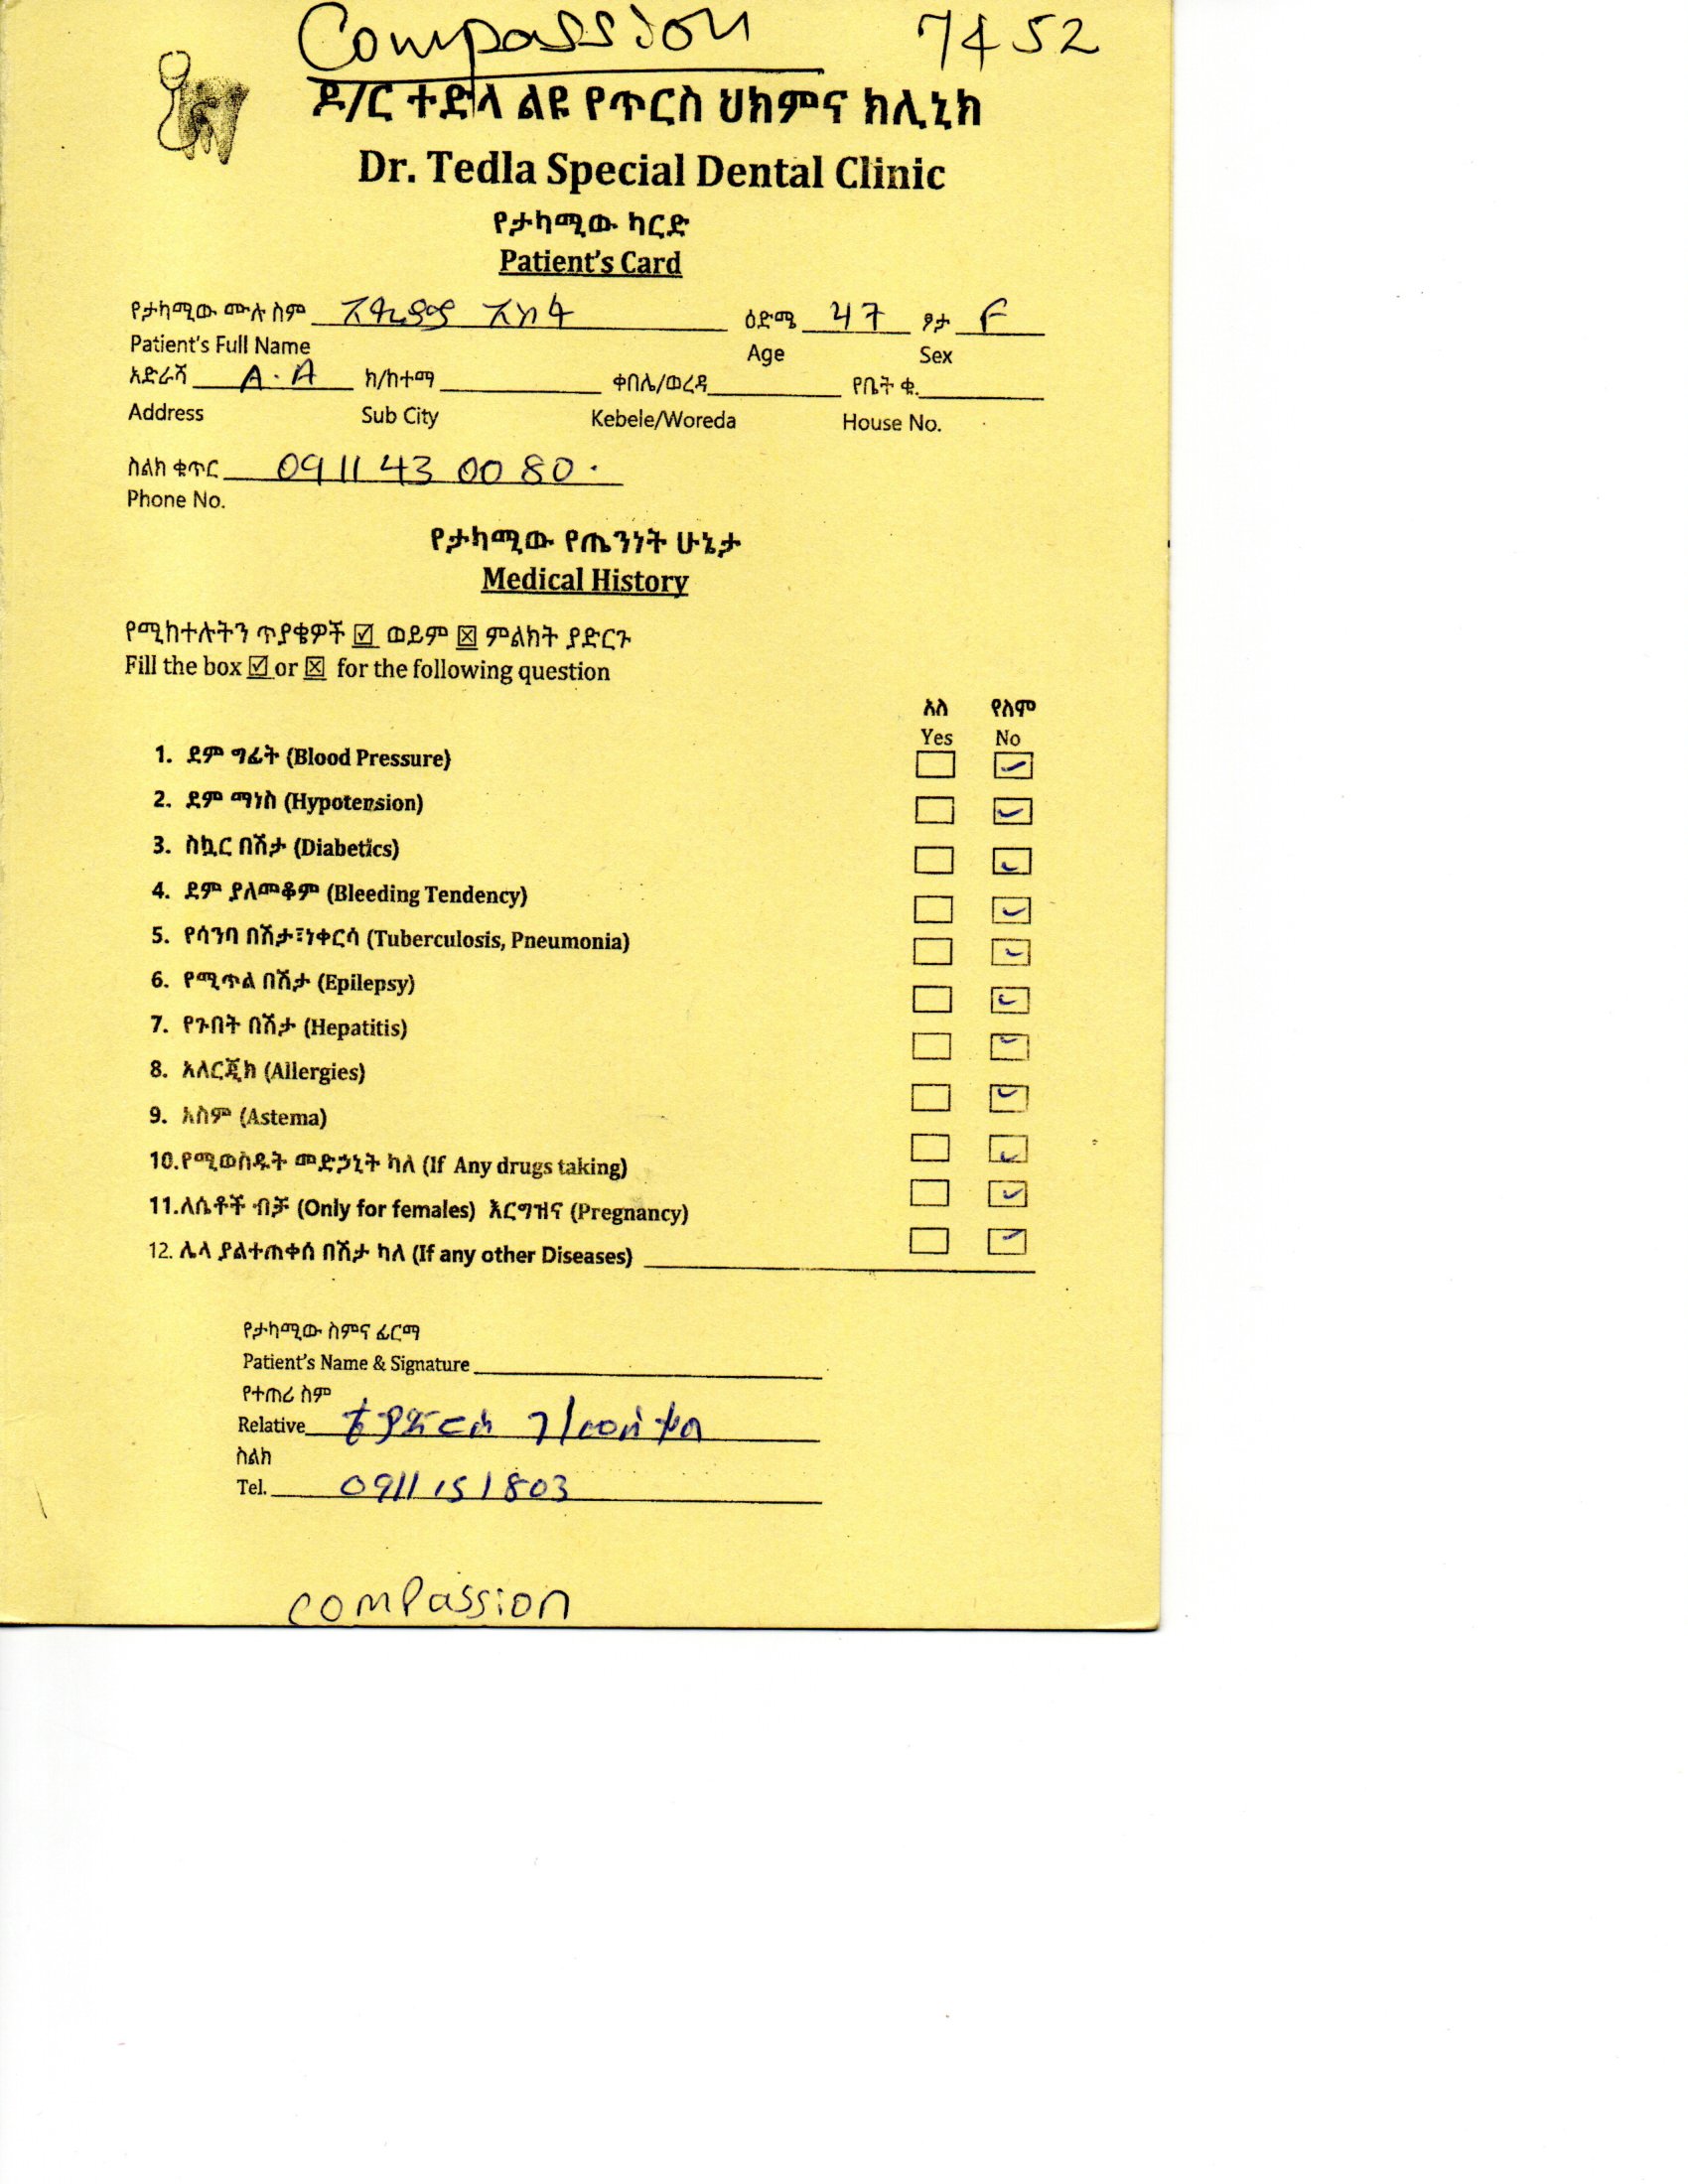 Compassion 7452
ዶ/ር ተድላ ልዩ የጥርስ ህክምና ክሊኒክ
Dr. Tedla Special Dental Clinic
የታካሚው ካርድ
Patient's Card
የታካሚው ሙሉ ስም ዕድሜ 47 ፆታ F
Patient's Full Name Age Sex
አድራሻ A.A ክ/ከተማ ቀበሌ/ወረዳ የቤት ቁ.
Address Sub City Kebele/Woreda House No.
ስልክ ቁጥር 0911 43 00 80.
Phone No.
የታካሚው የጤንነት ሁኔታ
Medical History
የሚከተሉትን ጥያቄዎች ☑ ወይም ☒ ምልክት ያድርጉ
Fill the box ☑ or ☒ for the following question
አለ የለም
Yes No
1. ደም ግፊት (Blood Pressure)
2. ደም ማነስ (Hypotension)
3. ስኳር በሽታ (Diabetics)
4. ደም ያለመቆም (Bleeding Tendency)
5. የሳንባ በሽታ፣ነቀርሳ (Tuberculosis, Pneumonia)
6. የሚጥል በሽታ (Epilepsy)
7. የጉበት በሽታ (Hepatitis)
8. አለርጂክ (Allergies)
9. አስም (Astema)
10.የሚወስዱት መድኃኒት ካለ (If Any drugs taking)
11.ለሴቶች ብቻ (Only for females) እርግዝና (Pregnancy)
12. ሌላ ያልተጠቀሰ በሽታ ካለ (If any other Diseases)
የታካሚው ስምና ፊርማ
Patient's Name & Signature
የተጠሪ ስም
Relative ቴዎድርስ ገ/መስቀል
ስልክ
Tel. 0911 151803
compassion